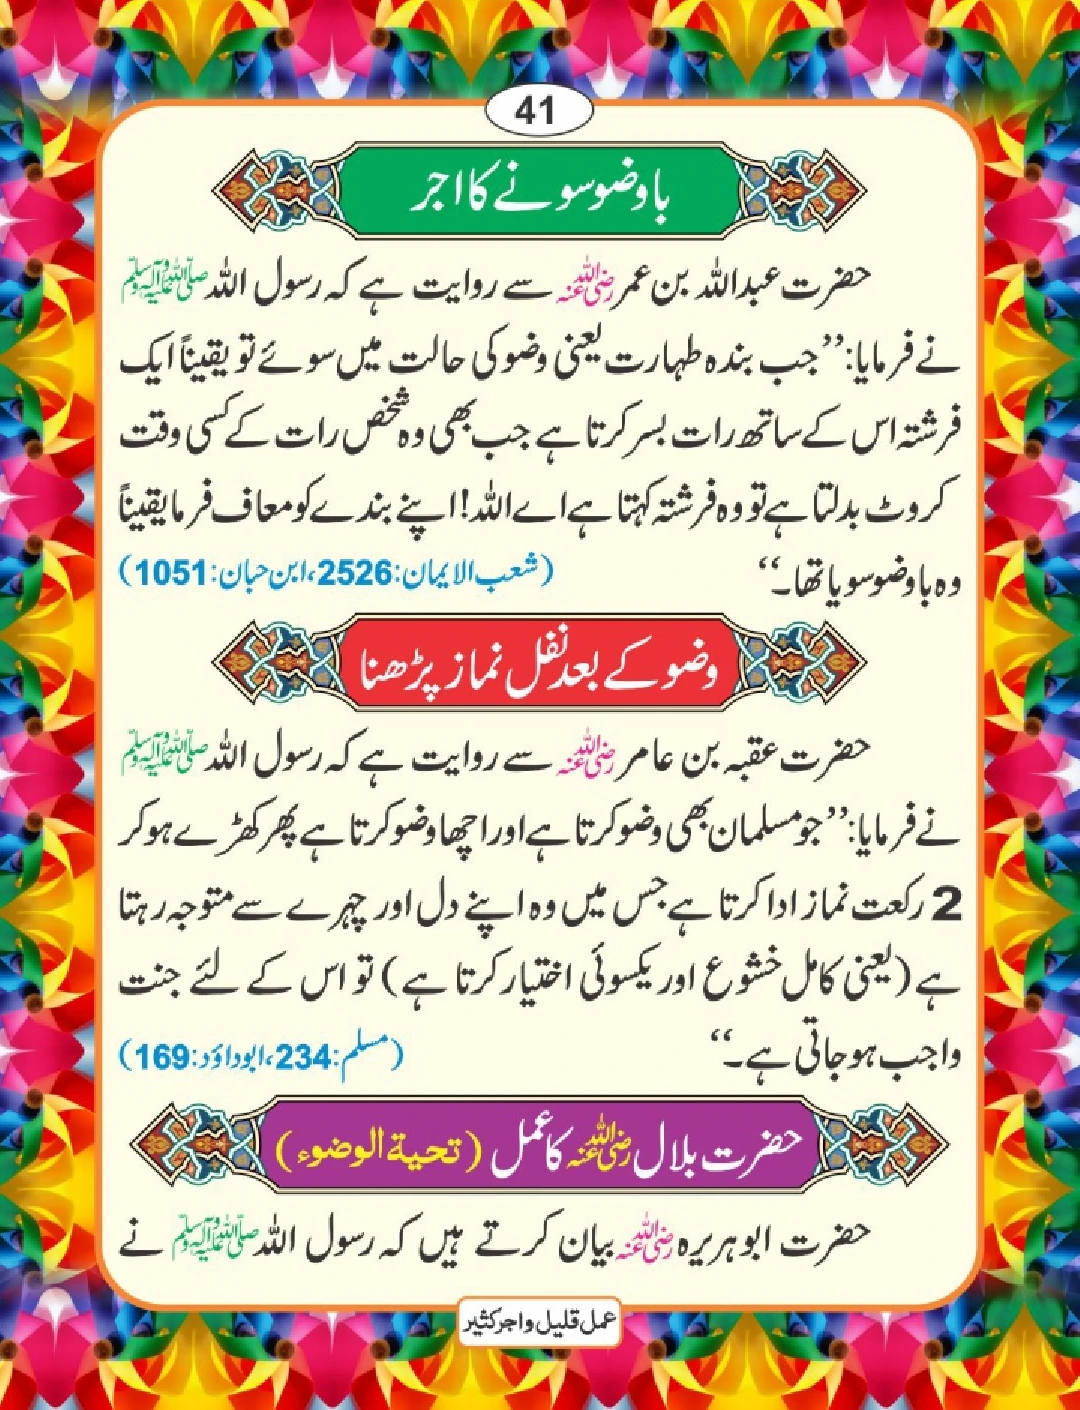 41
باوضو سونے کا اجر
حضرت عبداللہ بن عمر رضی اللہ عنہ سے روایت ہے کہ رسول اللہ صلی اللہ علیہ وآلہ وسلم
نے فرمایا: ’’جب بندہ طہارت یعنی وضو کی حالت میں سوئے تو یقیناً ایک
فرشتہ اس کے ساتھ رات بسر کرتا ہے جب بھی وہ شخص رات کے کسی وقت
کروٹ بدلتا ہے تو وہ فرشتہ کہتا ہے اے اللہ! اپنے بندے کو معاف فرما یقیناً
وہ باوضو سویا تھا۔‘‘ (شعب الایمان: 2526، ابن حبان: 1051)
وضو کے بعد نفل نماز پڑھنا
حضرت عقبہ بن عامر رضی اللہ عنہ سے روایت ہے کہ رسول اللہ صلی اللہ علیہ وآلہ وسلم
نے فرمایا: ’’جو مسلمان بھی وضو کرتا ہے اور اچھا وضو کرتا ہے پھر کھڑے ہو کر
2 رکعت نماز ادا کرتا ہے جس میں وہ اپنے دل اور چہرے سے متوجہ رہتا
ہے (یعنی کامل خشوع اور یکسوئی اختیار کرتا ہے) تو اس کے لئے جنت
واجب ہو جاتی ہے۔‘‘ (مسلم: 234، ابوداؤد: 169)
حضرت بلال رضی اللہ عنہ کا عمل (تحیۃ الوضوء)
حضرت ابوہریرہ رضی اللہ عنہ بیان کرتے ہیں کہ رسول اللہ صلی اللہ علیہ وآلہ وسلم نے
عمل قلیل و اجر کثیر